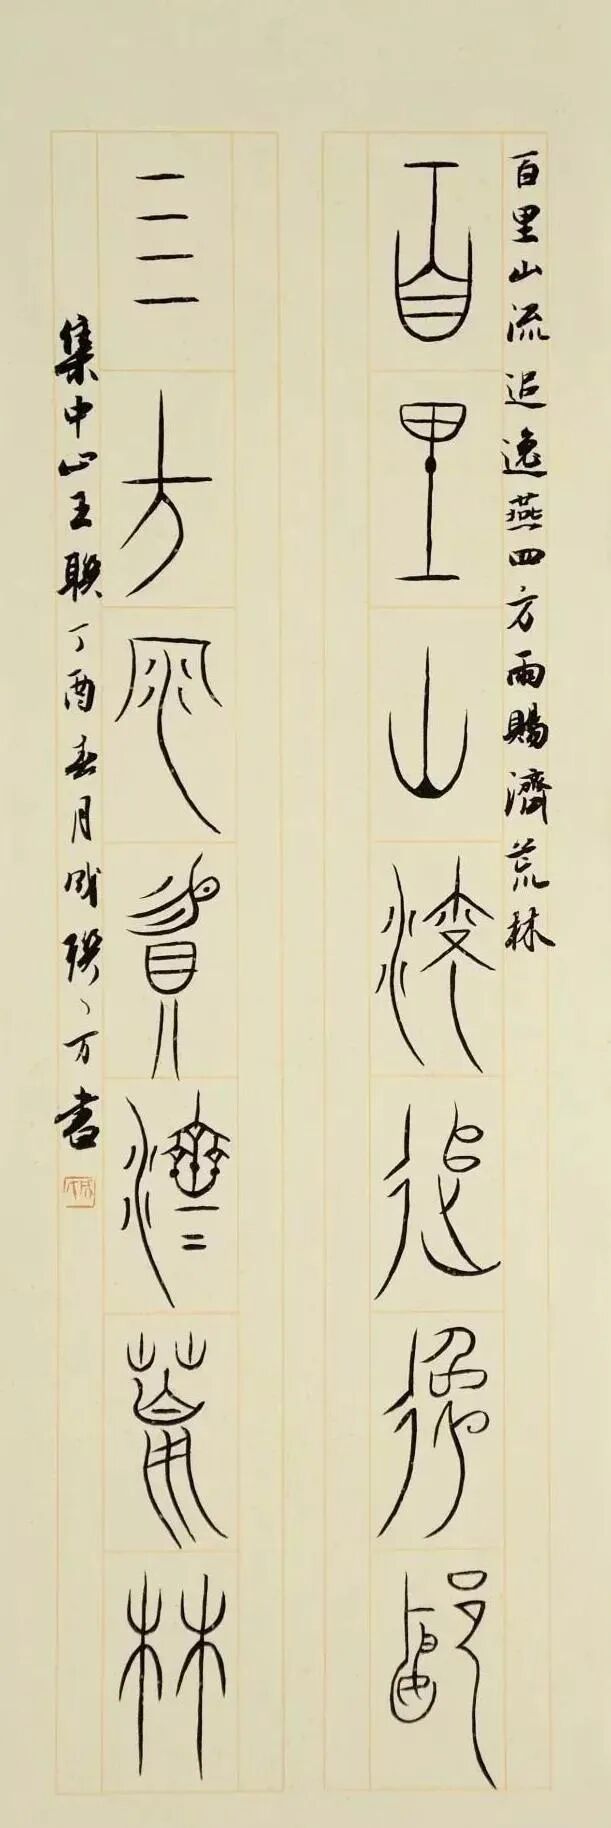 百里山流追逸燕四方雨賜濟荒林
百里山流追逸燕
四方雨賜濟荒林
集中山王聯丁酉春月成方書